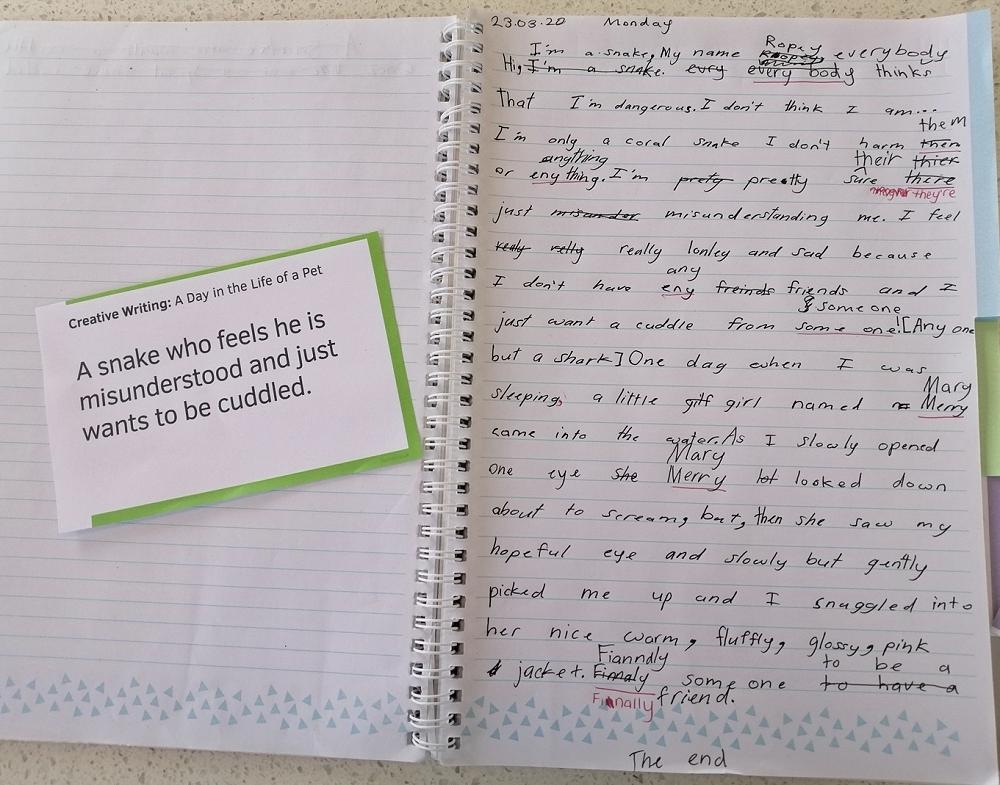 Creative Writing: A Day in the Life of a Pet
A snake who feels he is
misunderstood and just
wants to be cuddled.
23.03.20 Monday
I'm a snake, My name Ropey everybody
Hi, I'm a snake. evry every body thinks
That I'm dangerous. I don't think I am...
them
I'm only a coral snake I don't harm them
anything their thier
or enything. I'm prety pretty sure there
they're
just misunder misunderstanding me. I feel
realy relly really lonley and sad because
any
I don't have eny freinds friends and I
someone
just want a cuddle from some one! [Any one
but a shark] One day when I was
Mary
sleeping, a little girl named Merry
came into the water. As I slowly opened
Mary
one eye she Merry lot looked down
about to scream, but, then she saw my
hopeful eye and slowly but gently
picked me up and I snuggled into
her nice warm, fluffly, glossy, pink
Fianndly to be a
jacket. Finnaly some one to have a
Finnally friend.
The end